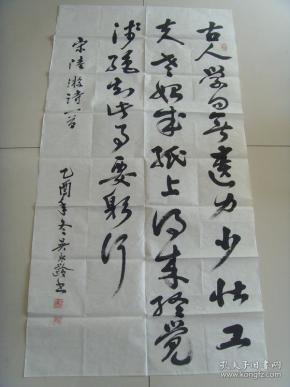 古人学问无遗力少壮工
夫老始成纸上得来终觉
浅绝知此事要躬行
宋陆游诗一首
乙酉年冬吴永龄书
孔夫子旧书网